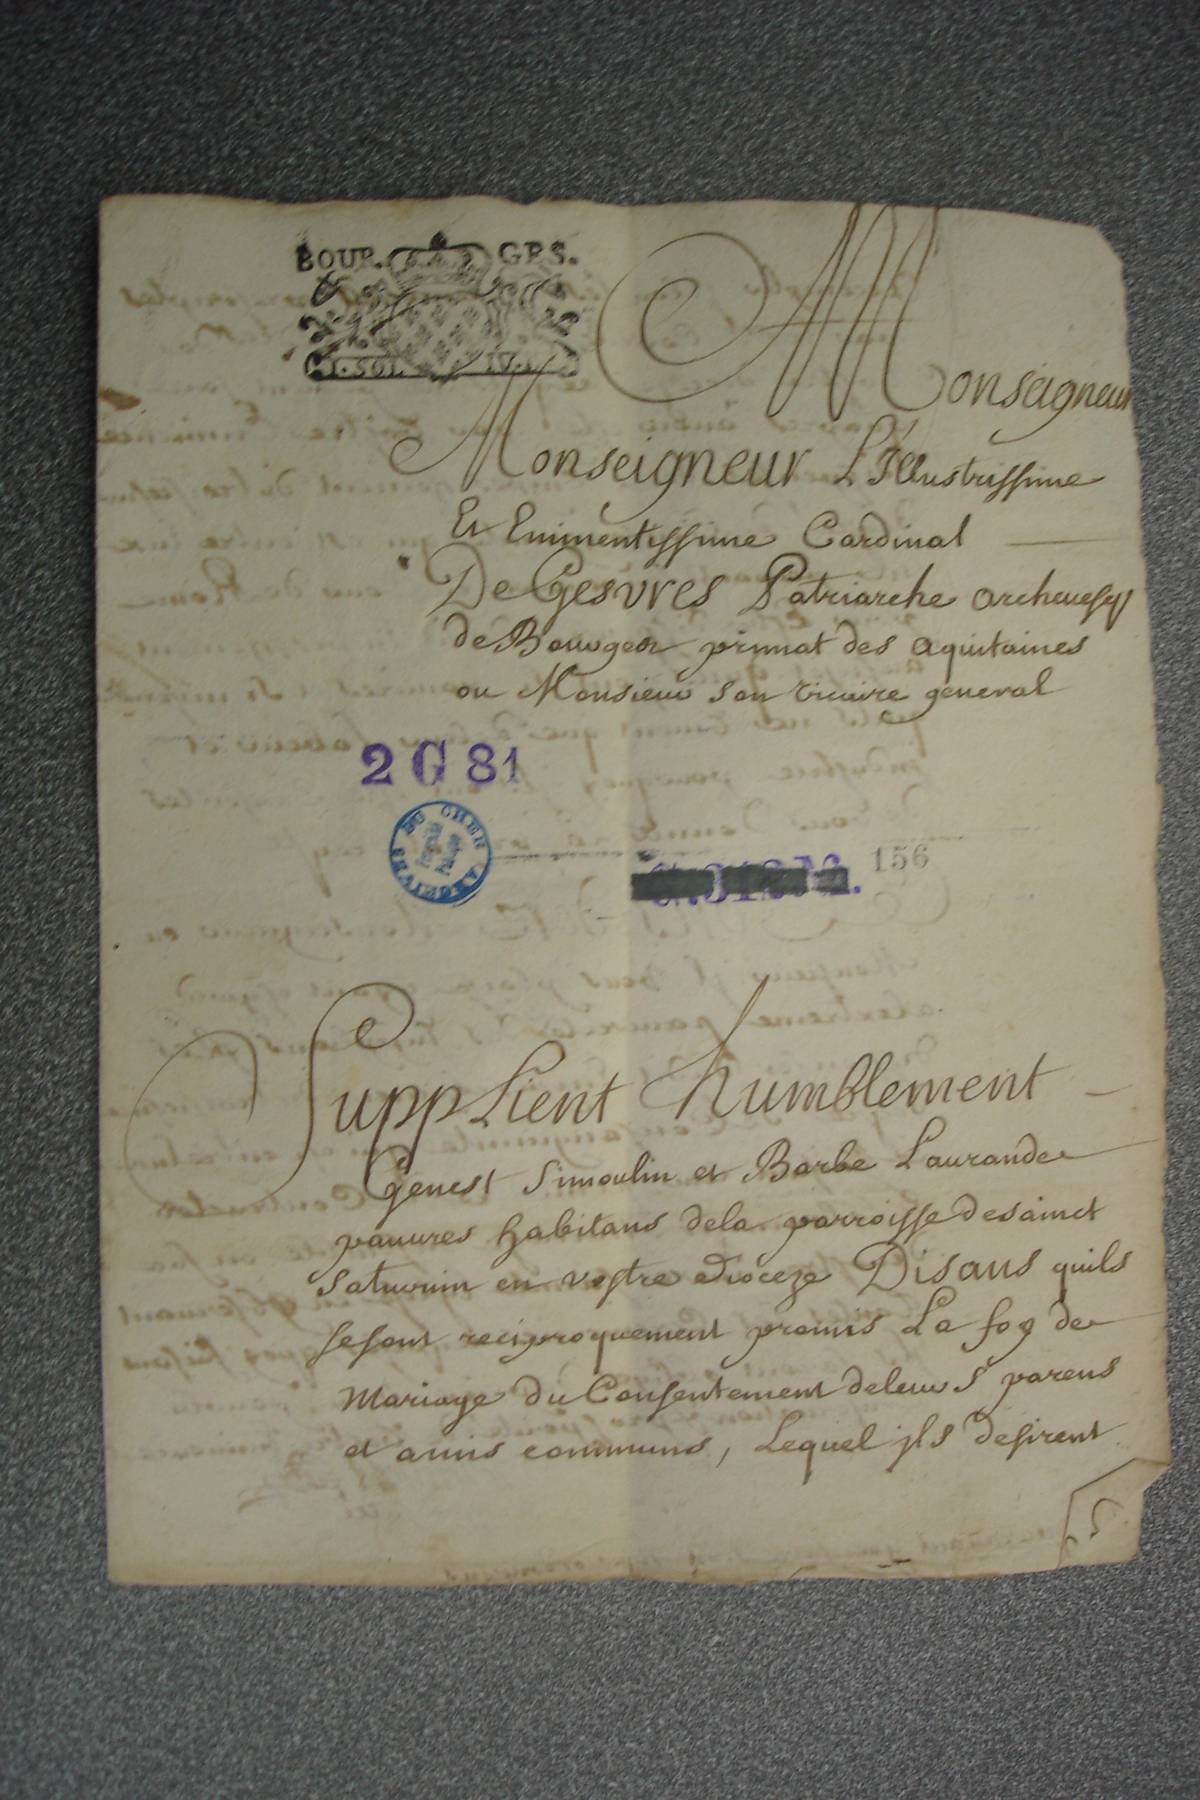 BOUR. GES.
Monseigneur
Monseigneur L'Illustrissime
Et Eminentissime Cardinal
De Gesvres Patriarche archevesq
de Bourges primat des aquitaines
ou Monsieur son vicaire general
2 G 81
ARCHIVES DU CHER
156
Supplient humblement
Genest Simoulin et Barbe Laurande
pauures habitans dela parroisse desainct
Saturnin en vostre Dioceze Disans quils
sesont reciproquement promis La foy de
Mariage du Consentement deleurs parens
et amis communs, Lequel jls desirent